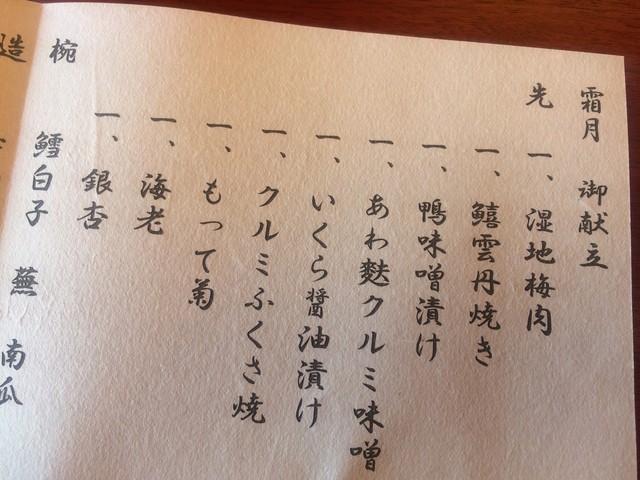 霜月 御献立
先 一、湿地梅肉
一、鱚雲丹焼き
一、鴨味噌漬け
一、あわ麩クルミ味噌
一、いくら醤油漬け
一、クルミふくさ焼
一、もって菊
一、海老
一、銀杏
椀 鱈白子 蕪 南瓜
造